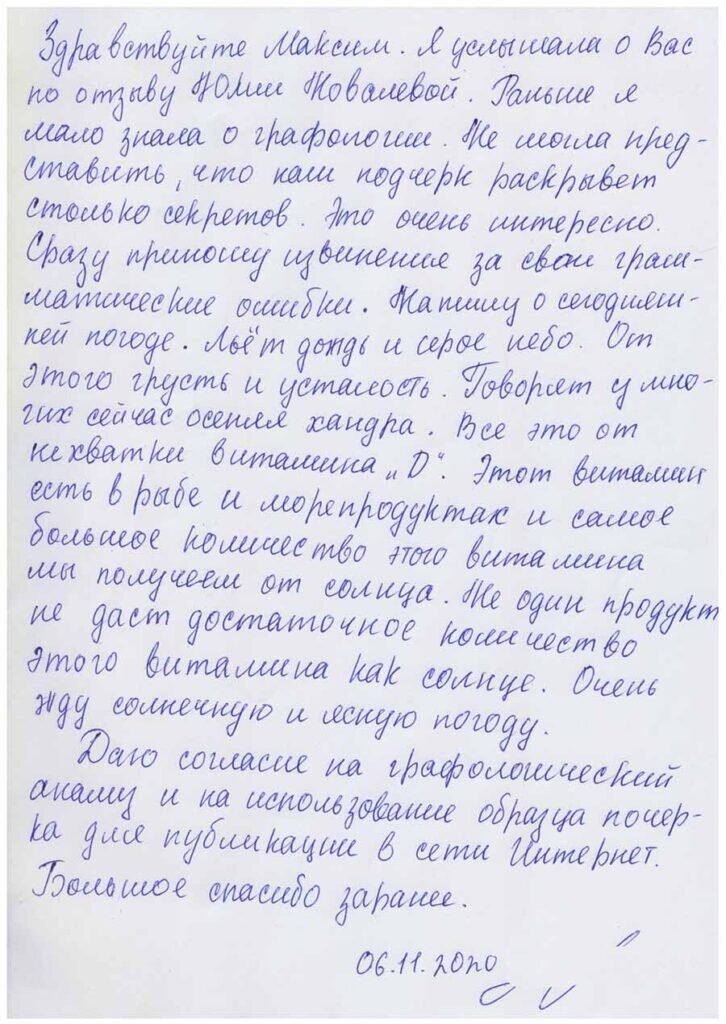 Здравствуйте Максим. Я услышала о Вас
по отзыву Юлии Ковалевой. Раньше я
мало знала о графологии. Не могла пред-
ставить, что наш подчерк раскрывет
столько секретов. Это очень интересно.
Сразу приношу извинения за свои грам-
матические ошибки. Напишу о сегодняш-
ней погоде. Льёт дождь и серое небо. От
этого грусть и усталость. Говорят у мно-
гих сейчас осенняя хандра. Все это от
нехватки витамина „D“. Этот витамин
есть в рыбе и морепродуктах и самое
большое количество этого витамина
мы получаем от солнца. Не один продукт
не даст достаточное количество
этого витамина как солнце. Очень
жду солнечную и ясную погоду.
Даю согласие на графологический
анализ и на использование образца почер-
ка для публикации в сети Интернет.
Большое спасибо заранее.
06.11.2020